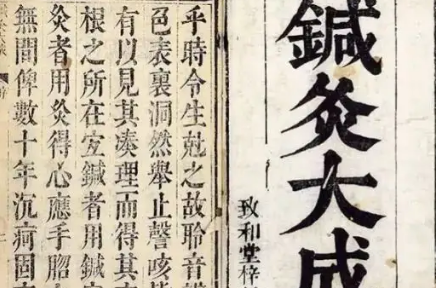 鍼灸大成
致和堂梓
乎時令生尅之故聆音
色表裏洞然舉止謦咳
有以見其湊理而得其
根之所在宜鍼者用鍼
灸者用灸得心應手
無間俾數十年沉痾固